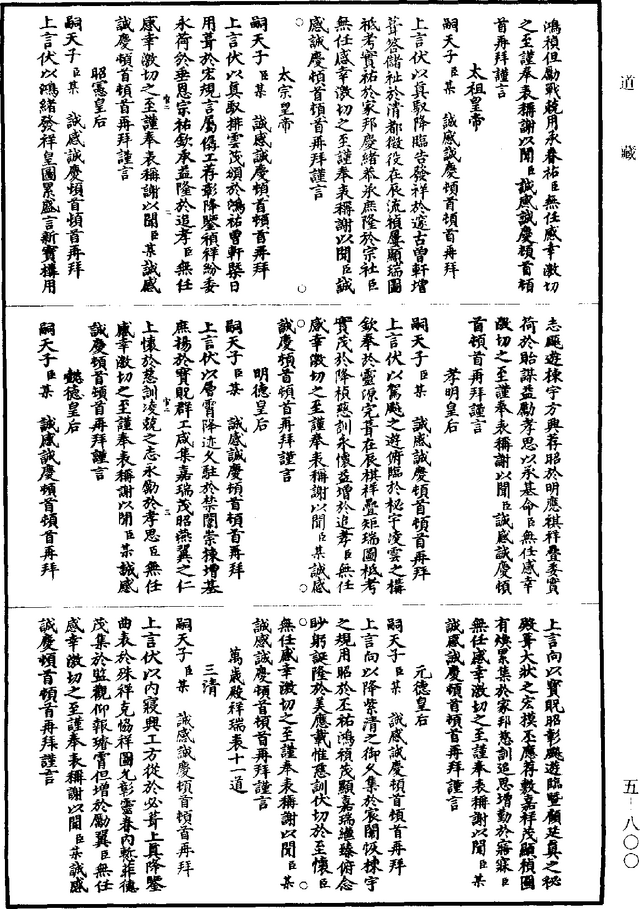 道藏
鴻禎但勵戰兢用承眷祐臣無任感幸激切
之至謹奉表稱謝以聞臣誠感誠慶頓首頓
首再拜謹言
太祖皇帝
嗣天子臣某　誠感誠慶頓首頓首再拜
上言伏以真馭降臨告發祥於邃古曽軒增
葺答儲祉於清都徵役在辰流禎屢顯瑞圖
祗考實祐於家邦慶緒恭承庶隆於宗社臣
無任感幸激切之至謹奉表稱謝以聞臣誠
感誠慶頓首頓首再拜謹言
太宗皇帝
嗣天子臣某　誠感誠慶頓首頓首再拜
上言伏以真馭排雲茂頒於鴻祐曽軒槩日
用葺於宏規言屬僝工荐彰降鑒禎祥紛委
永荷於垂恩宗祐欽承益隆於追孝臣無任
感幸激切之至謹奉表稱謝以聞臣某誠感
誠慶頓首頓首再拜謹言
昭憲皇后
嗣天子臣某　誠感誠慶頓首頓首再拜
上言伏以鴻緒發祥皇圖累盛言新寶構用
志飈遊棟宇方興荐昭於明應祺祥疊委實
荷於貽謀益勵孝思以承基命臣無任感幸
激切之至謹奉表稱謝以聞臣誠感誠慶頓
首頓首再拜謹言
孝明皇后
嗣天子臣某　誠感誠慶頓首頓首再拜
上言伏以駕飈之遊俯臨於祕宇凌雲之構
欽奉於靈源完葺在辰祺祥疊矩瑞圖祗考
實茂於降禎慈訓永懷益增於追孝臣無任
感幸激切之至謹奉表稱謝以聞臣某誠感
誠慶頓首頓首再拜謹言
明德皇后
嗣天子臣某　誠感誠慶頓首頓首再拜
上言伏以層霄降迹久駐於禁闈崇棟增基
庶揚於寶貺群工咸集嘉瑞茂昭燕翼之仁
上懷於慈訓凌兢之志永勵於孝思臣無任
感幸激切之至謹奉表稱謝以聞臣某誠感
誠慶頓首頓首再拜謹言
懿德皇后
嗣天子臣某　誠感誠慶頓首頓首再拜
上言向以寶貺昭彰飈遊臨暨願延真之秘
殿葺大狀之宏模丕應荐敷嘉祥茂顯禎圖
有煥累集於家邦慈訓追思增勤於寤寐臣
無任感幸激切之至謹奉表稱謝以聞臣某
誠感誠慶頓首頓首再拜謹言
元德皇后
嗣天子臣某　誠感誠慶頓首頓首再拜
上言向以降紫清之御久集於宸闈恢棟宇
之規用昭於丕祐鴻禎茂顯嘉瑞繼臻俯念
眇躬誕隆於美應載惟慈訓伏切於至懷臣
無任感幸激切之至謹奉表稱謝以聞臣某
誠感誠慶頓首頓首再拜謹言
萬歲殿祥瑞表十一道
三清
嗣天子臣某　誠感誠慶頓首頓首再拜
上言伏以內寢興工方從於必葺上真降鑒
曲表於殊祥克協祥圖允彰靈眷內慙菲德
茂集於監觀仰報璿霄但增於勵翼臣無任
感幸激切之至謹奉表稱謝以聞臣某誠感
誠慶頓首頓首再拜謹言
五-八〇〇